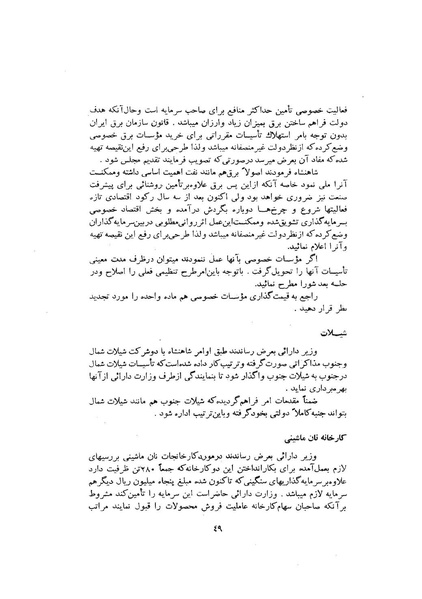 فعالیت خصوصی تأمین حداکثر منافع برای صاحب سرمایه است وحال آنکه هدف
دولت فراهم ساختن برق بمیزان زیاد وارزان میباشد . قانون سازمان برق ایران
بدون توجه بامر استهلاک تأسیسات مقرراتی برای خرید مؤسسات برق خصوصی
وضع کرده که از نظر دولت غیر منصفانه میباشد ولذا طرحی برای رفع این نقیصه تهیه
شده که مفاد آن بعرض میرسد درصورتی که تصویب فرمایند تقدیم مجلس شود .
شاهنشاه فرمودند اصولاً برق هم مانند نفت اهمیت اساسی داشته وممکنست
آنرا ملی نمود خاصه آنکه ازاین پس برق علاوه برتأمین روشنائی برای پیشرفت
صنعت نیز ضروری خواهد بود ولی اکنون بعد از سه سال رکود اقتصادی تازه
فعالیتها شروع و چرخها دوباره بگردش درآمده و بخش اقتصاد خصوصی
بسرمایه گذاری تشویق شده وممکنست این عمل اثر روانی مطلوبی دربین سرمایه گذاران
وضع کرده که از نظر دولت غیر منصفانه میباشد ولذا طرحی برای رفع این نقیصه تهیه
وآنرا اعلام نمائید.
اگر مؤسسات خصوصی بآنها عمل ننمودند میتوان درظرف مدت معینی
تأسیسات آنها را تحویل گرفت . باتوجه باین امر طرح تنظیمی فعلی را اصلاح ودر
جلسه بعد شورا مطرح نمائید.
راجع به قیمت گذاری مؤسسات خصوصی هم ماده واحده را مورد تجدید
نظر قرار دهید .
شیلات
وزیر دارائی بعرض رساندند طبق اوامر شاهنشاه با دو شرکت شیلات شمال
وجنوب مذاکراتی صورت گرفته وترتیب کار داده شده است که تأسیسات شیلات شمال
درجنوب به شیلات جنوب واگذار شود تا بنمایندگی ازطرف وزارت دارائی ازآنها
بهره برداری نماید .
ضمناً مقدمات امر فراهم گردیده که شیلات جنوب هم مانند شیلات شمال
بتواند جنبه کاملاً دولتی بخود گرفته وباین ترتیب اداره شود .
کارخانه نان ماشینی
وزیر دارائی بعرض رساندند درمورد کارخانجات نان ماشینی بررسیهای
لازم بعمل آمده برای بکارانداختن این دو کارخانه که جمعاً ۲۸۰ تن ظرفیت دارد
علاوه بر سرمایه گذاریهای سنگینی که تاکنون شده مبلغ پنجاه میلیون ریال دیگر هم
سرمایه لازم میباشد . وزارت دارائی حاضر است این سرمایه را تأمین کند مشروط
بر آنکه صاحبان سهام کارخانه عاملیت فروش محصولات را قبول نمایند مراتب
٤٩